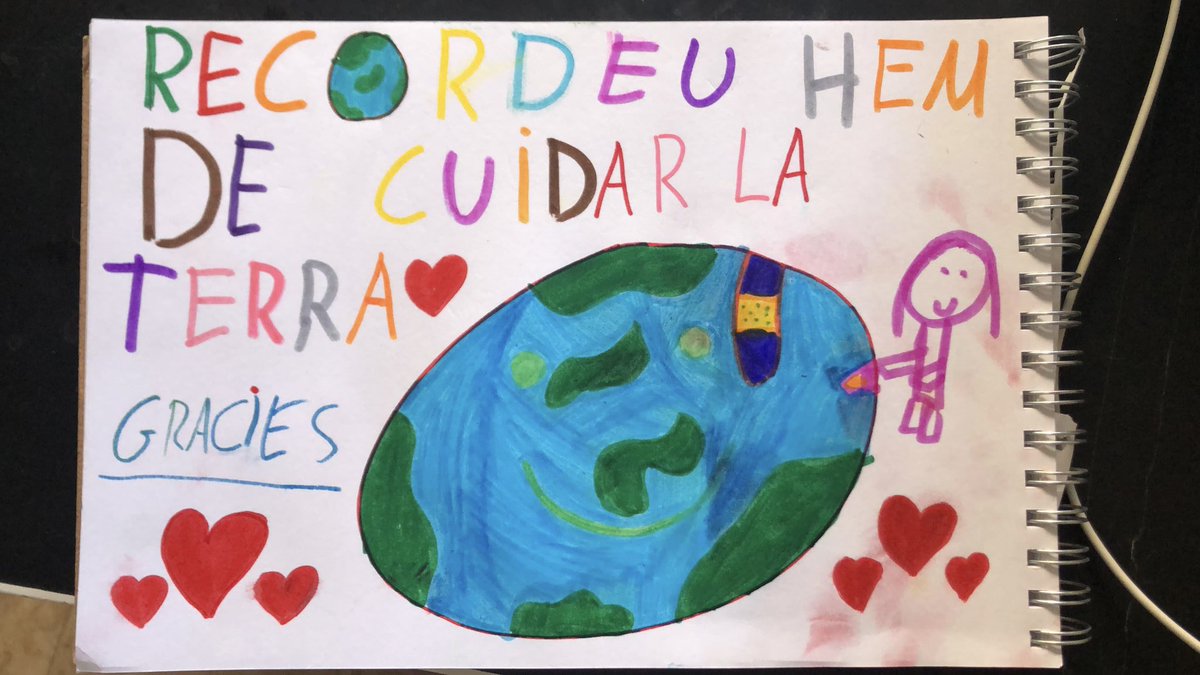 RECORDEU HEM
DE CUIDAR LA
TERRA
GRACIES